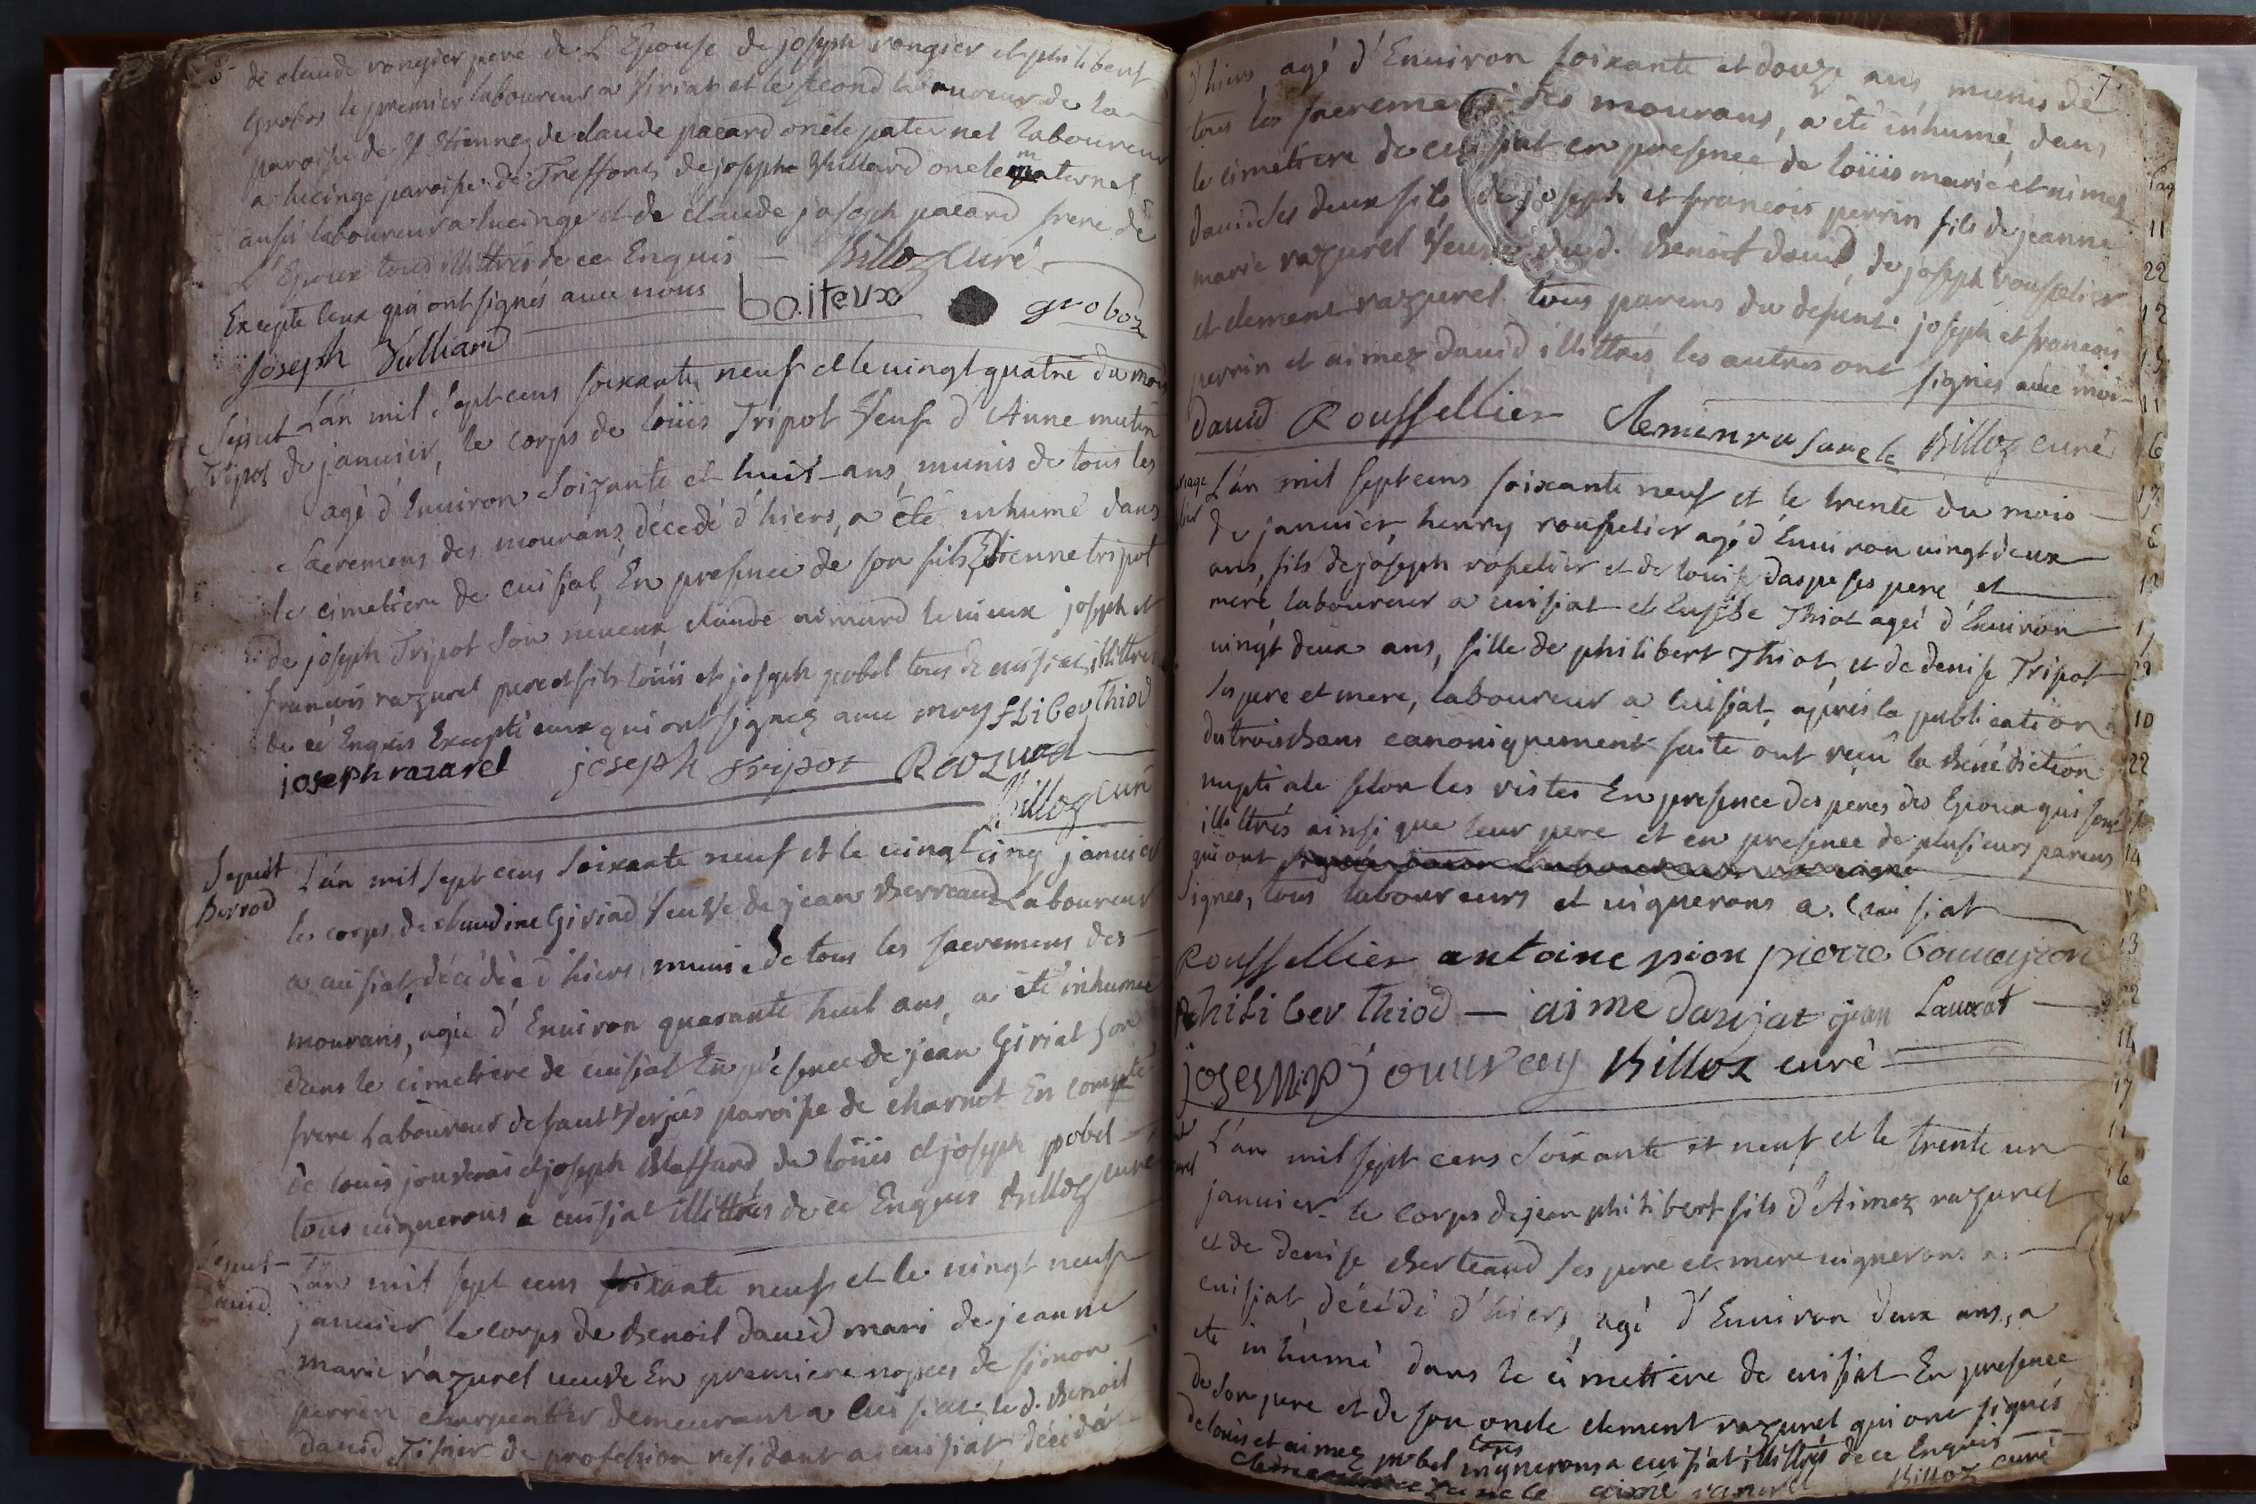 de claude rongier pere de L'Epouse de joseph rongier et philibert
grobos le premier laboureur a siriat et le second laboureur de la
paroisse de St Etienne, de claude pacard oncle paternel laboureur
a lucinge paroisse de Treffort, de josephe Vulliard oncle maternel
aussi laboureur a lucinge et de claude joseph pacard frere de
L'Epoux tous illittrés de ce Enquis — Billoz curé
Excepte ceux qui ont signés avec nous boiteux groboz
joseph Vulliard
Sepult L'an mil sept cens soixante neuf et le vingt quatre du mois
Tripot de janvier, le corps de loüis Tripot Veuf d'Anne mutin
agé d'Environ soizante et huit ans, munis de tous les
sacremens des mourans, décedé d'hiers, a été inhumé dans
le cimetiere de cuisiat, En presence de son fils Etienne tripot
de joseph Tripot son neveux, claude aimard le vieux joseph et
françois razurel pere et fils loüis et joseph pobel tous de cuisiat illittrés
de ce Enquis Excepté ceux qui ont signez avec moy fLibey thiod
joseph razarel joseph tripot Razurel
Billoz curé
Sepult L'an mil sept cens soixante neuf et le vingt cinq janvier
Berrod le corps de claudine Giriad Veuve de jean Berreaud Laboureur
a cuisiat, décédée d'hiers, munie de tous les sacremens des
mourans, agée d'Environ quarante huit ans, a été inhumée
dans le cimetiere de cuisiat En présence de jean Giriat son
frere Laboureur de saut Verjus paroisse de charnot En compte
de louis jouvrai et joseph Bleffard de loüis et joseph pobel
tous vignerons a cuisiat illittrés de ce Enquis Billoz curé
Sepult L'an mil sept cens soixante neuf et le vingt neuf
David janvier le corps de Benoit david mari de jeanne
marie razurel veuve En premiere nopces de simon
perrin charpentier demeurant a cuisiat, le d. Benoit
david Tissier de profession residant a cuisiat, décédé
7
d'hiers agé d'Environ soixante et douze ans, munis de
tous les sacremens des mourans, a été inhumé dans
le cimetiere de cuisiat en presence de loüis marie et aimez
david ses deux fils de joseph et francois perrin fils de jeanne
marie razurel Veuve dud. Benoit david, de joseph rousselier
et clement razurel tous parens du defunt. joseph et francois
perrin et aimez david illittrés, les autres ont signés avec moi
david Rouffellier Clemen ra surele Billoz curé
L'an mil sept cens soixante neuf et le trente du mois
de janvier, henry rousselier agé d'Environ vingt deux
ans, fils de joseph rosselier et de louise daspe ses pere et
mere, laboureur a cuisiat et Eusebe Thiot agée d'Environ
vingt deux ans, fille de philibert Thiot, et de denise Tripot
ses pere et mere, laboureur a cuisiat, aprés la publication
des trois bans canoniquement faite ont reçu la Bénédiction
nuptiale selon les ristes En presence des peres des Epoux qui sont
illittrés ainsi que leur pere et en presence de plusieurs parens
qui ont
signes, tous laboureurs et vignerons a cuisiat
Rouffellier antoine pion pierre
philiber thiod — aime danjat jean Lauxat
joseph jouvray Billoz curé
L'an mil sept cens soixante et neuf et le trente un
janvier le corps de jean philibert fils d'Aimez razurel
et de denise Berteaud ses pere et mere vignerons a
cuisiat, décédé d'hiers, agé d'Environ deux ans, a
été inhumé dans le cimetiere de cuisiat En presence
de son pere et de son oncle clement razurel qui ont signés
de louis et aimez pobel tous vignerons a cuisiat illittrés de ce Enquis
aimé razurel Billoz curé